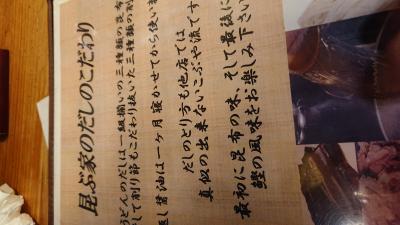 昆ぶ家のだしのこだわり
うどんのだしは一級揃いの三種類の昆布
して削り節もこだわり抜いた三種類の削
返し醤油は一ヶ月寝かせてから使い
だしのとり方も他店では
真似の出来ないこぶや流です
そして最後に
最初に昆布の味、
鰹の風味をお楽しみ下さい